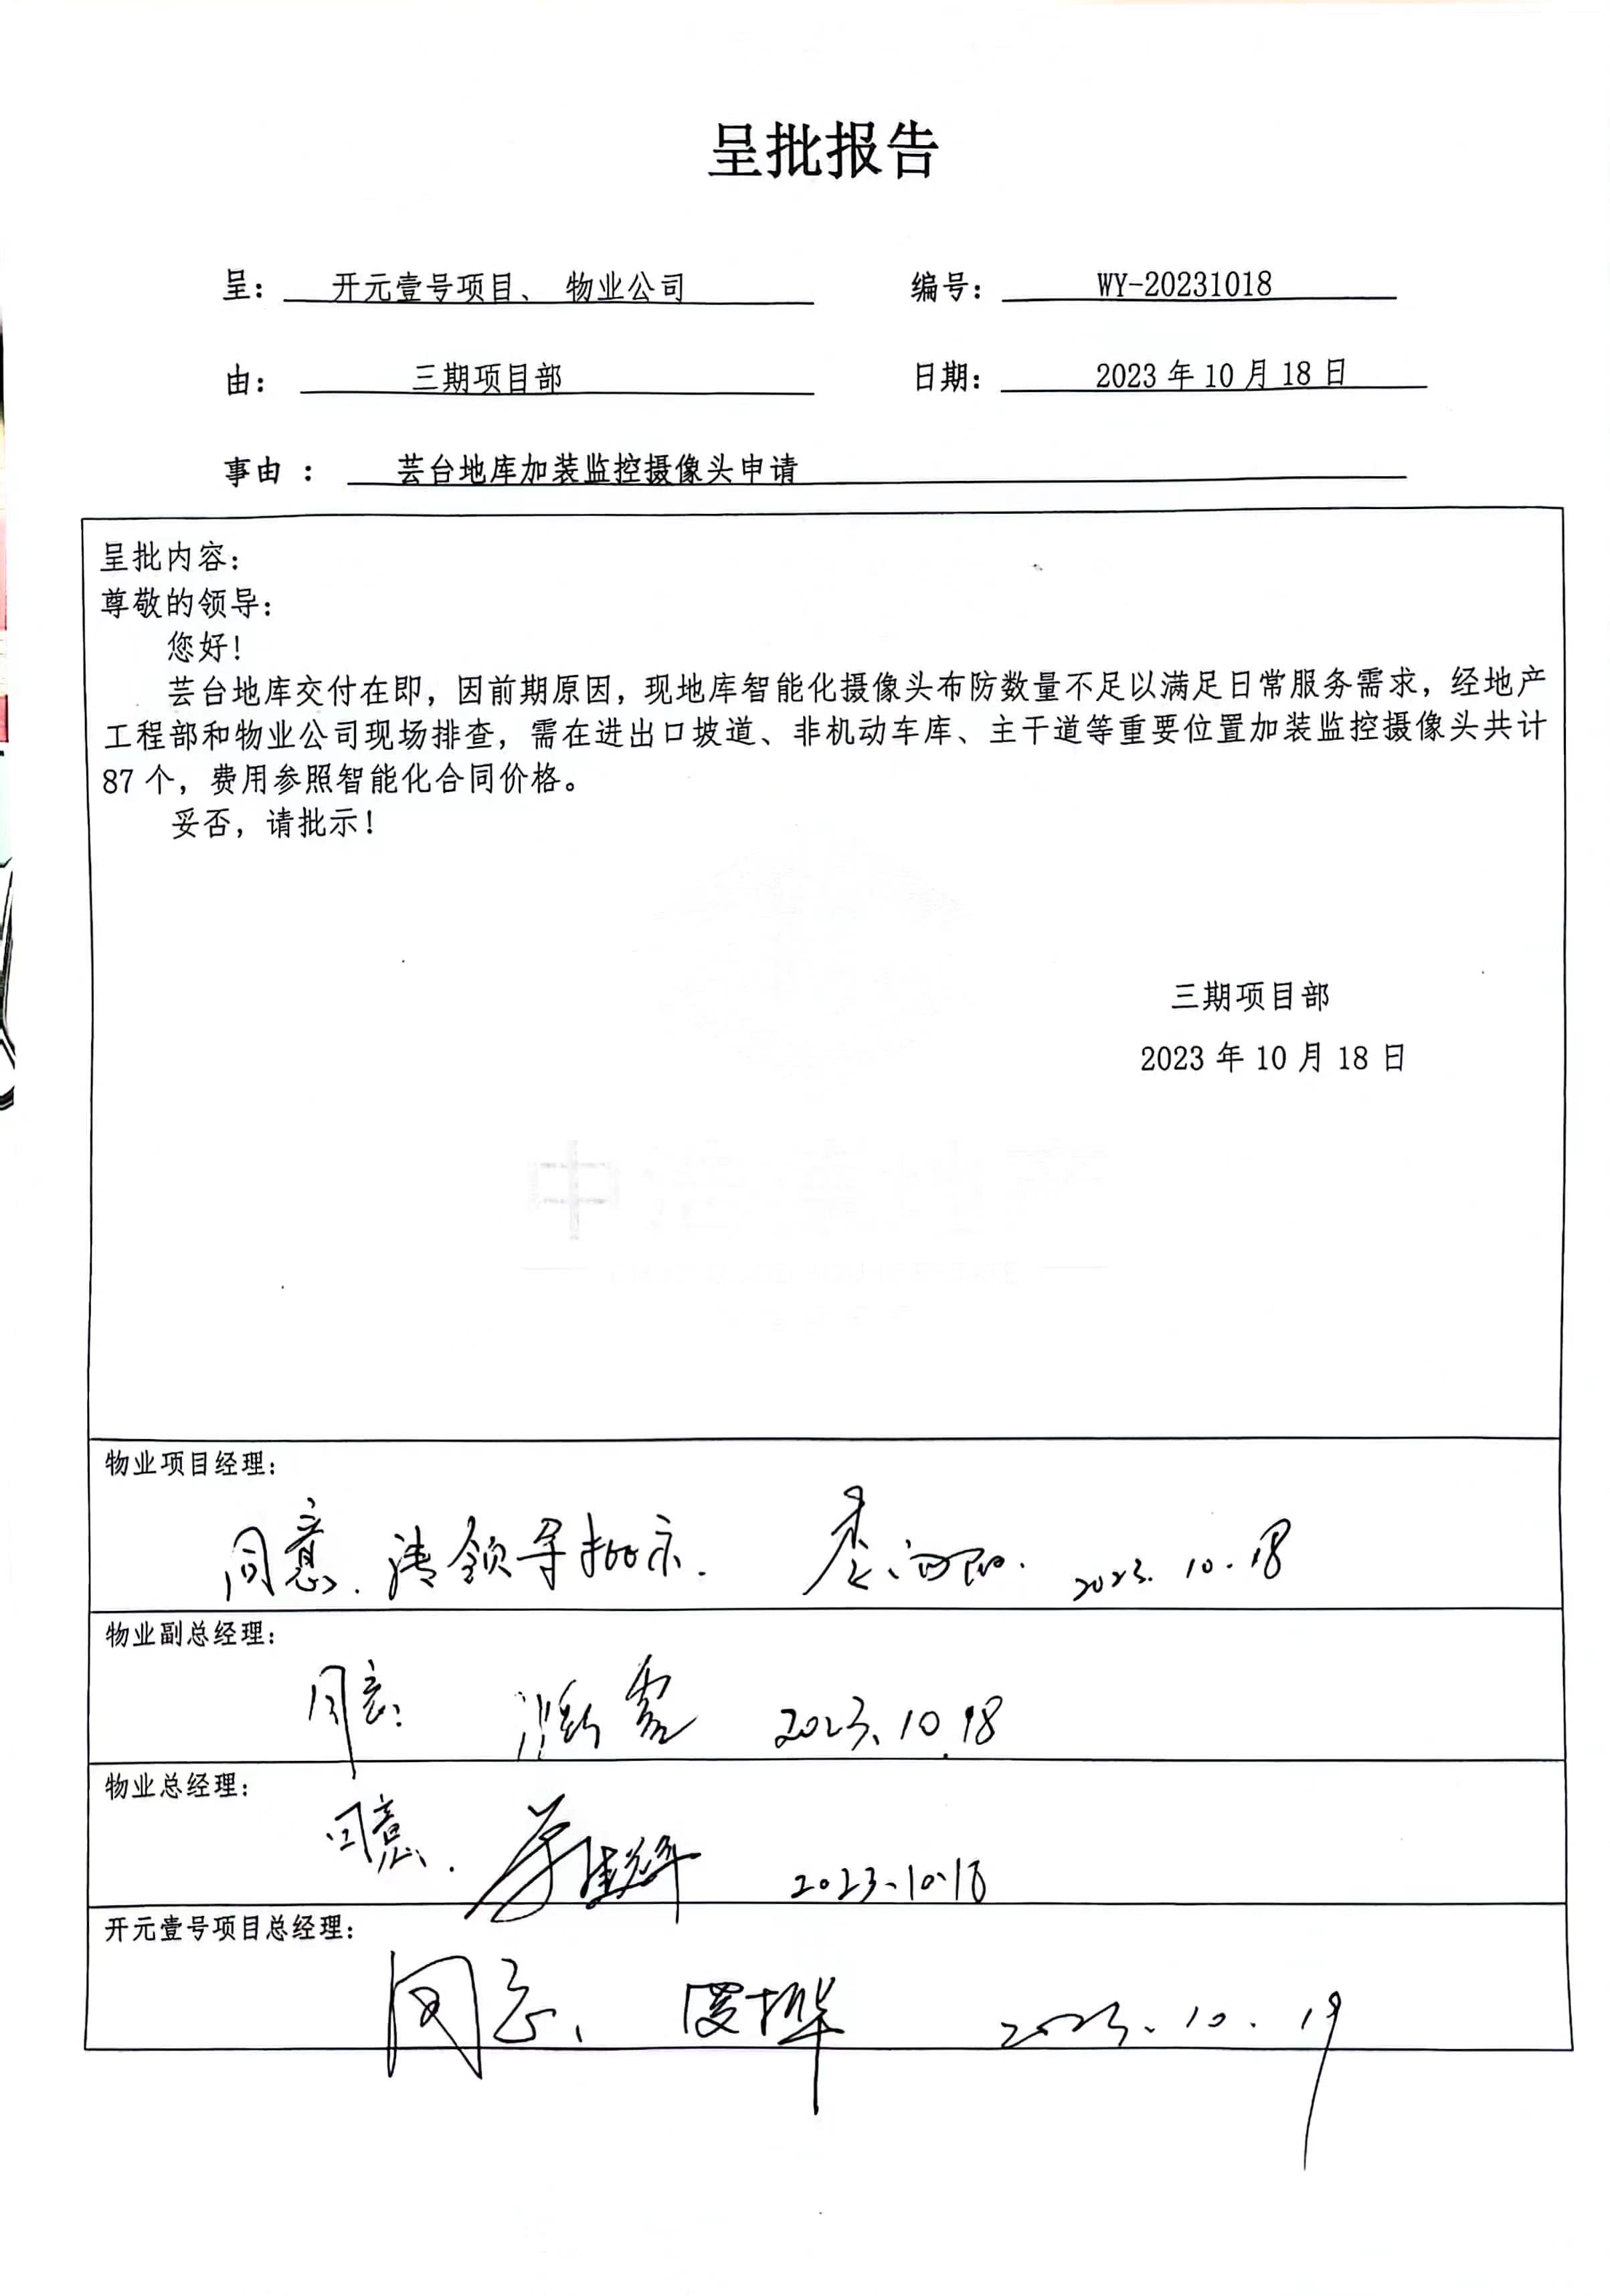 呈批报告
呈： 开元壹号项目、 物业公司 编号： WY-20231018
由： 三期项目部 日期： 2023 年 10 月 18 日
事由 ： 芸台地库加装监控摄像头申请
呈批内容：
尊敬的领导：
您好！
芸台地库交付在即，因前期原因，现地库智能化摄像头布防数量不足以满足日常服务需求，经地产
工程部和物业公司现场排查，需在进出口坡道、非机动车库、主干道等重要位置加装监控摄像头共计
87 个，费用参照智能化合同价格。
妥否，请批示！
三期项目部
2023 年 10 月 18 日
物业项目经理：
同意.请领导批示. 2023.10.18
物业副总经理：
同意. 2023.10.18
物业总经理：
同意. 2023.10.18
开元壹号项目总经理：
同意. 2023.10.19